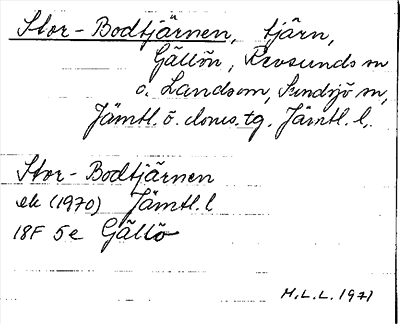 Stor-Bodtjärnen, tjärn,
Gällön, Revsunds sn
o. Landsom, Sundsjö sn,
Jämtl. ö. doms. tg. Jämtl. l.
Stor-Bodtjärnen
ek (1970) Jämtl. l
18F 5e Gällö
H.L.L. 1971